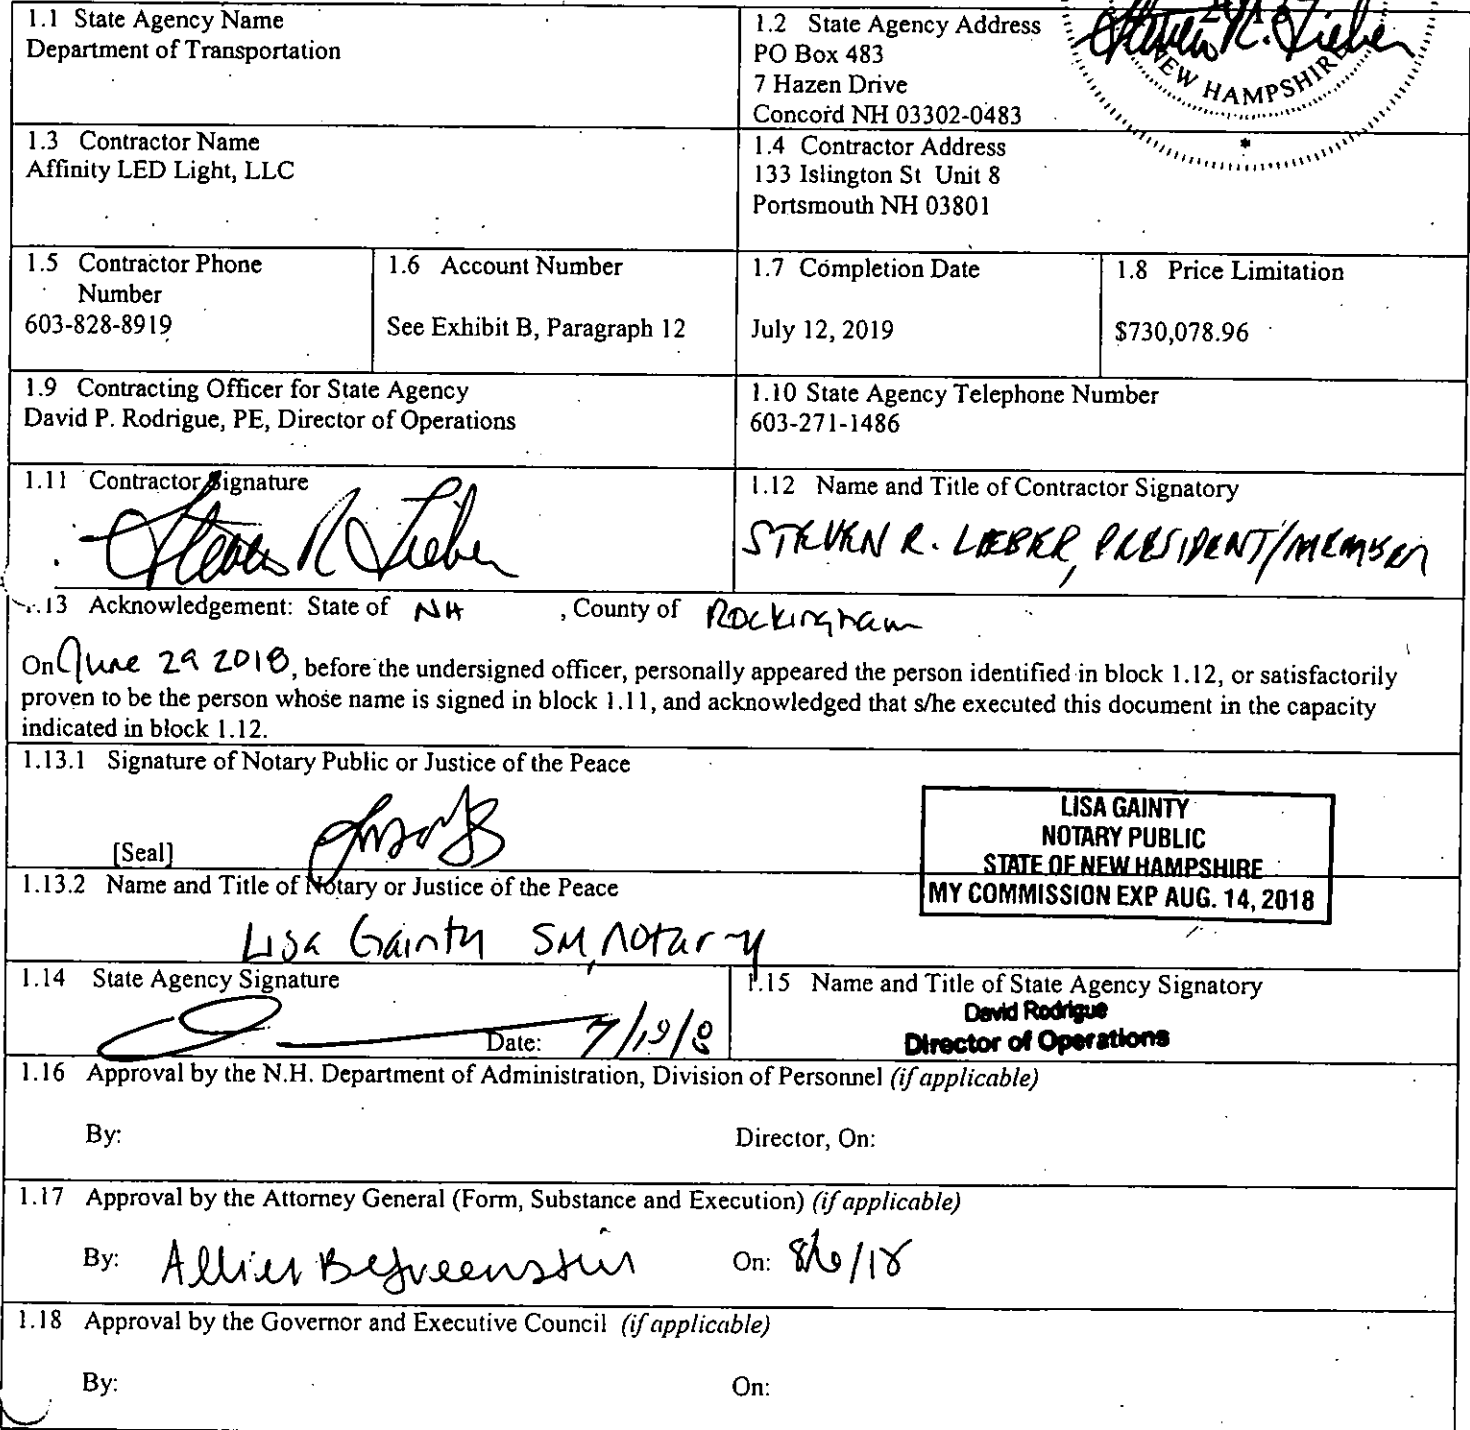 1.1 State Agency Name
Department of Transportation
1.2 State Agency Address
PO Box 483
7 Hazen Drive
Concord NH 03302-0483
Steven R. Lieber
NEW HAMPSHIRE
*
1.3 Contractor Name
Affinity LED Light, LLC
1.4 Contractor Address
133 Islington St Unit 8
Portsmouth NH 03801
1.5 Contractor Phone
Number
603-828-8919
1.6 Account Number
See Exhibit B, Paragraph 12
1.7 Completion Date
July 12, 2019
1.8 Price Limitation
$730,078.96
1.9 Contracting Officer for State Agency
David P. Rodrigue, PE, Director of Operations
1.10 State Agency Telephone Number
603-271-1486
1.11 Contractor Signature
Steven R Lieber
1.12 Name and Title of Contractor Signatory
STEVEN R. LIEBER, PRESIDENT/MEMBER
1.13 Acknowledgement: State of NH , County of Rockingham
On June 29 2018, before the undersigned officer, personally appeared the person identified in block 1.12, or satisfactorily
proven to be the person whose name is signed in block 1.11, and acknowledged that s/he executed this document in the capacity
indicated in block 1.12.
1.13.1 Signature of Notary Public or Justice of the Peace
[Seal]
LISA GAINTY
NOTARY PUBLIC
STATE OF NEW HAMPSHIRE
MY COMMISSION EXP AUG. 14, 2018
1.13.2 Name and Title of Notary or Justice of the Peace
Lisa Gainty SM, Notary
1.14 State Agency Signature
Date: 7/19/8
1.15 Name and Title of State Agency Signatory
David Rodrigue
Director of Operations
1.16 Approval by the N.H. Department of Administration, Division of Personnel (if applicable)
By:
Director, On:
1.17 Approval by the Attorney General (Form, Substance and Execution) (if applicable)
By:
On:
1.18 Approval by the Governor and Executive Council (if applicable)
By:
On: